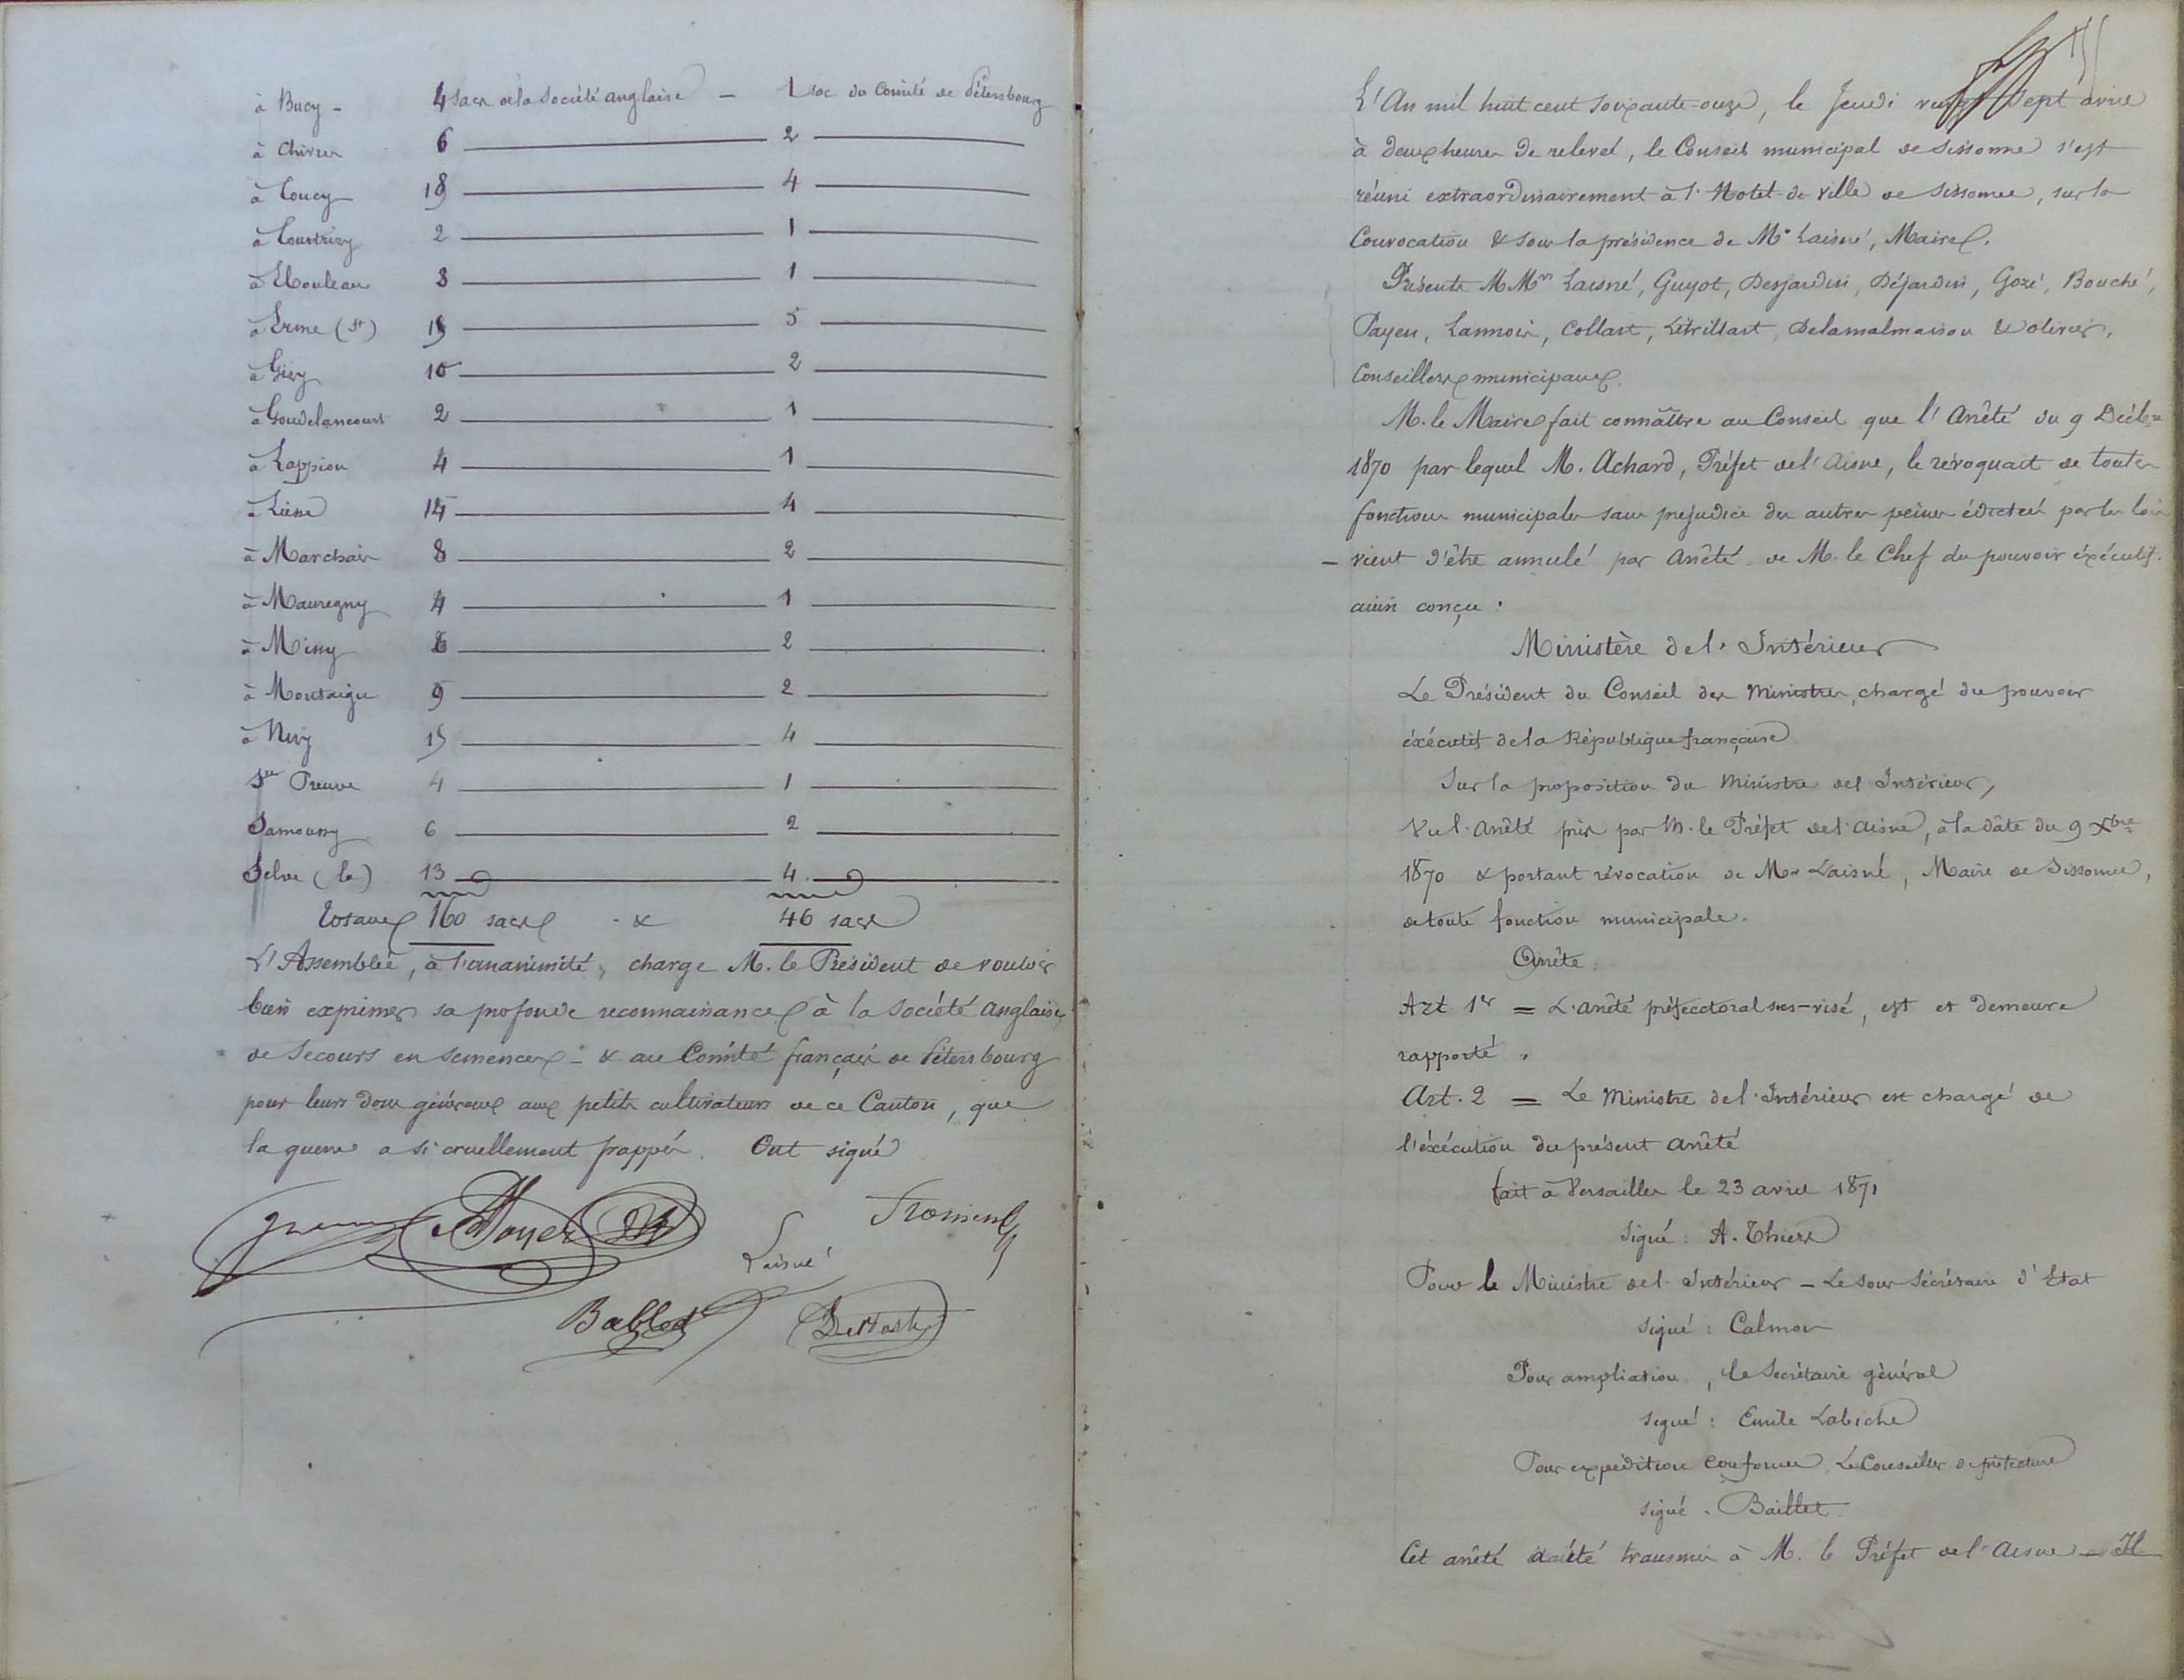 à Bucy - 4 sacs de la Société anglaise - 1 sac du Comité de Pétersbourg
à Chivres 6 2
à Coucy 18 4
à Courtrizy 2 1
à Ebouleau 3 1
à Erme (St) 19 5
à Gizy 10 2
à Goudelancourt 2 1
à Lappion 4 1
à Liesse 14 4
à Marchais 8 2
à Mauregny 4 1
à Missy 6 2
à Montaigu 9 2
à Nizy 15 4
Ste Preuve 4 1
Samoussy 6 2
Selve (la) 13 4
Totaux 160 sacs - & 46 sacs
L'Assemblée, à l'unanimité, charge M. le Président de vouloir
bien exprimer sa profonde reconnaissance à la Société anglaise
de Secours en semences - & au Comité français de Pétersbourg
pour leurs dons généreux aux petits cultivateurs de ce Canton, que
la guerre a si cruellement frappés. Ont signé
Froment
Laisné
L'An mil huit cent soixante-onze, le Jeudi vingt Sept avril
à deux heures de relevée, le Conseil municipal de Sissonne s'est
réuni extraordinairement à l'Hotel-de-Ville de Sissonne, sur la
Convocation & sous la présidence de Mr Laisné, Maire.
Présents MMrs Laisné, Guyot, Desjardin, Déjardin, Gozé, Bouché,
Payen, Lannois, Collart, Létrillart, Delamalmaison & Olivier,
Conseillers municipaux.
M. le Maire fait connaître au Conseil que l'Arrêté du 9 Décbre
1870 par lequel M. Achard, Préfet de l'Aisne, le révoquait de toutes
fonctions municipales sans préjudice des autres peines édictées par les lois
- vient d'être annulé par Arrêté de M. le Chef du pouvoir éxécutif.
ainsi conçu :
Ministère de l'Intérieur
Le Président du Conseil des Ministres, chargé du pouvoir
éxécutif de la République française
Sur la proposition du Ministre de l'Intérieur,
Vu l'Arrêté pris par M. le Préfet de l'Aisne, à la dâte du 9 Xbre
1870 & portant révocation de Mr Laisné, Maire de Sissonne,
de toute fonction municipale.
Arrête :
Art 1er = L'arrêté préfectoral sus-visé, est et demeure
rapporté.
Art. 2 = Le Ministre de l'Intérieur est chargé de
l'éxécution du présent arrêté
fait à Versailles le 23 avril 1871
Signé : A. Thiers
Pour le Ministre de l'Intérieur - Le sous Sécrétaire d'Etat
signé : Calmon
Pour ampliation, le Secrétaire général
signé : Emile Labiche
Pour expédition conforme, Le Conseiller de préfecture
signé : Baillet
Cet arrêté a été transmis à M. le Préfet de l'Aisne - Il